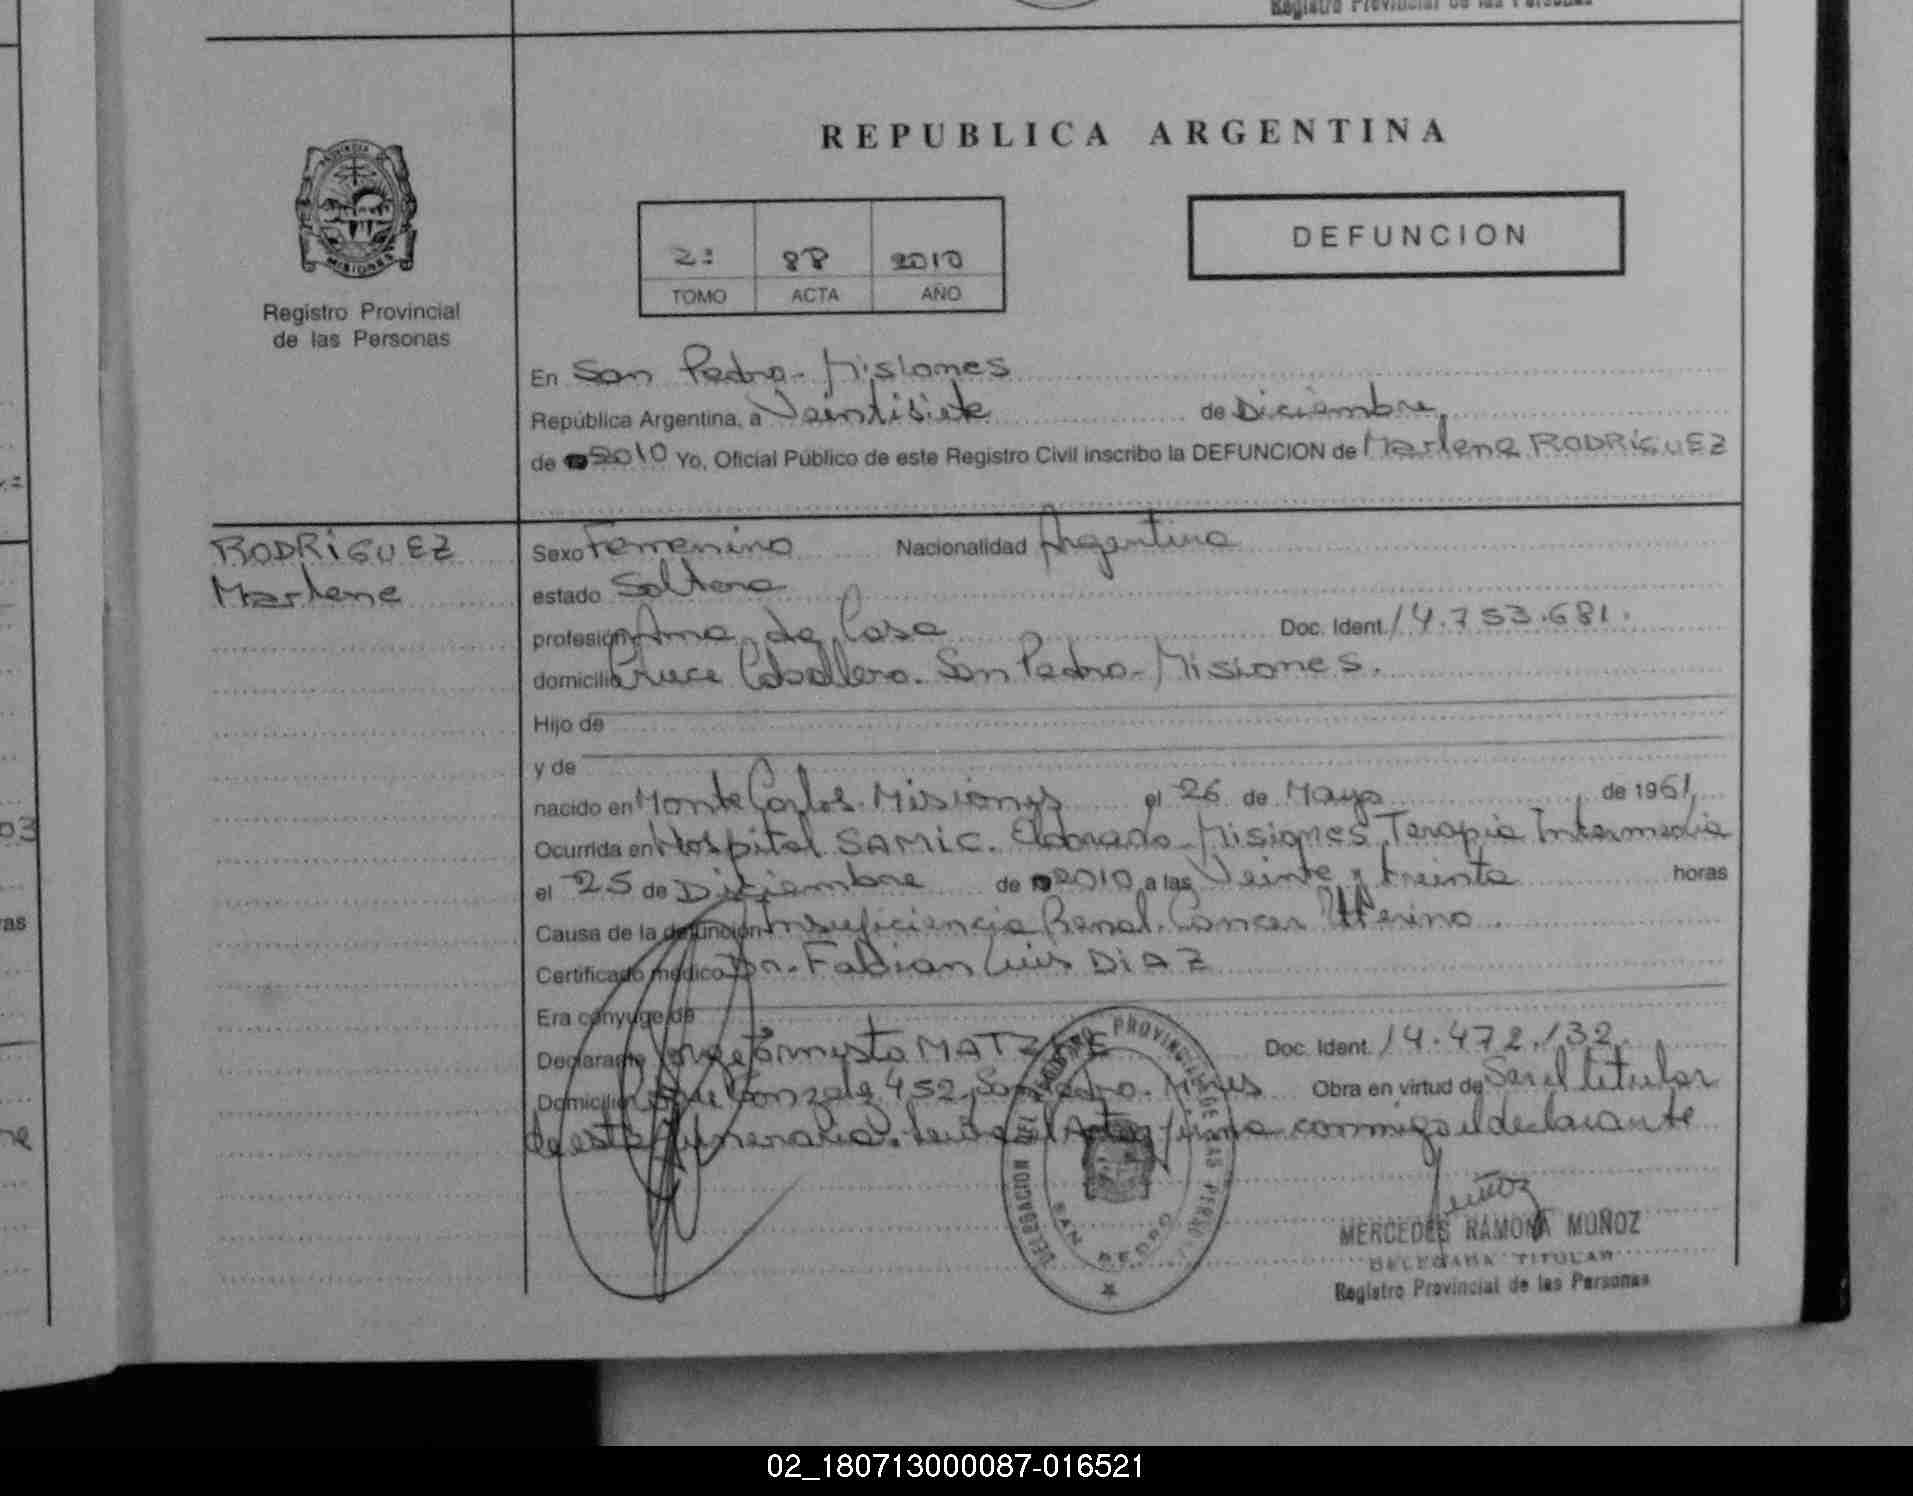 Registro Provincial de las Personas
REPUBLICA ARGENTINA
PROVINCIA DE
MISIONES
Registro Provincial
de las Personas
2: 88 2010
TOMO ACTA AÑO
DEFUNCION
En San Pedro - Misiones
República Argentina, a Veintisiete de Diciembre
de 2010 Yo, Oficial Público de este Registro Civil inscribo la DEFUNCION de Marlene RODRIGUEZ
RODRIGUEZ
Marlene
Sexo Femenino Nacionalidad Argentina
estado Soltera
profesión Ama de Casa Doc. Ident. 14.753.681.
domicilio Cruce Caballero. San Pedro - Misiones.
Hijo de
y de
nacido en Monte Carlos. Misiones el 26 de Mayo de 1961
Ocurrida en Hospital SAMIC. Eldorado - Misiones, Terapia Intermedia
el 25 de Diciembre de 2010 a las Veinte y treinta horas
Causa de la defunción Insuficiencia Renal. Cancer Uterino
Certificado médico Dr. Fabian Luis DIAZ
Era cónyuge de
Declarante Jorge Ernesto Doc. Ident. 14.472.132
Domicilio 452. San Pedro. Mnes Obra en virtud de Ser el titular
de esta funeraria. Leida el Acta, firma conmigo el declarante
DELEGACION
SAN PEDRO
MERCEDES RAMONA MUÑOZ
DELEGADA TITULAR
Registro Provincial de las Personas
02_180713000087-016521